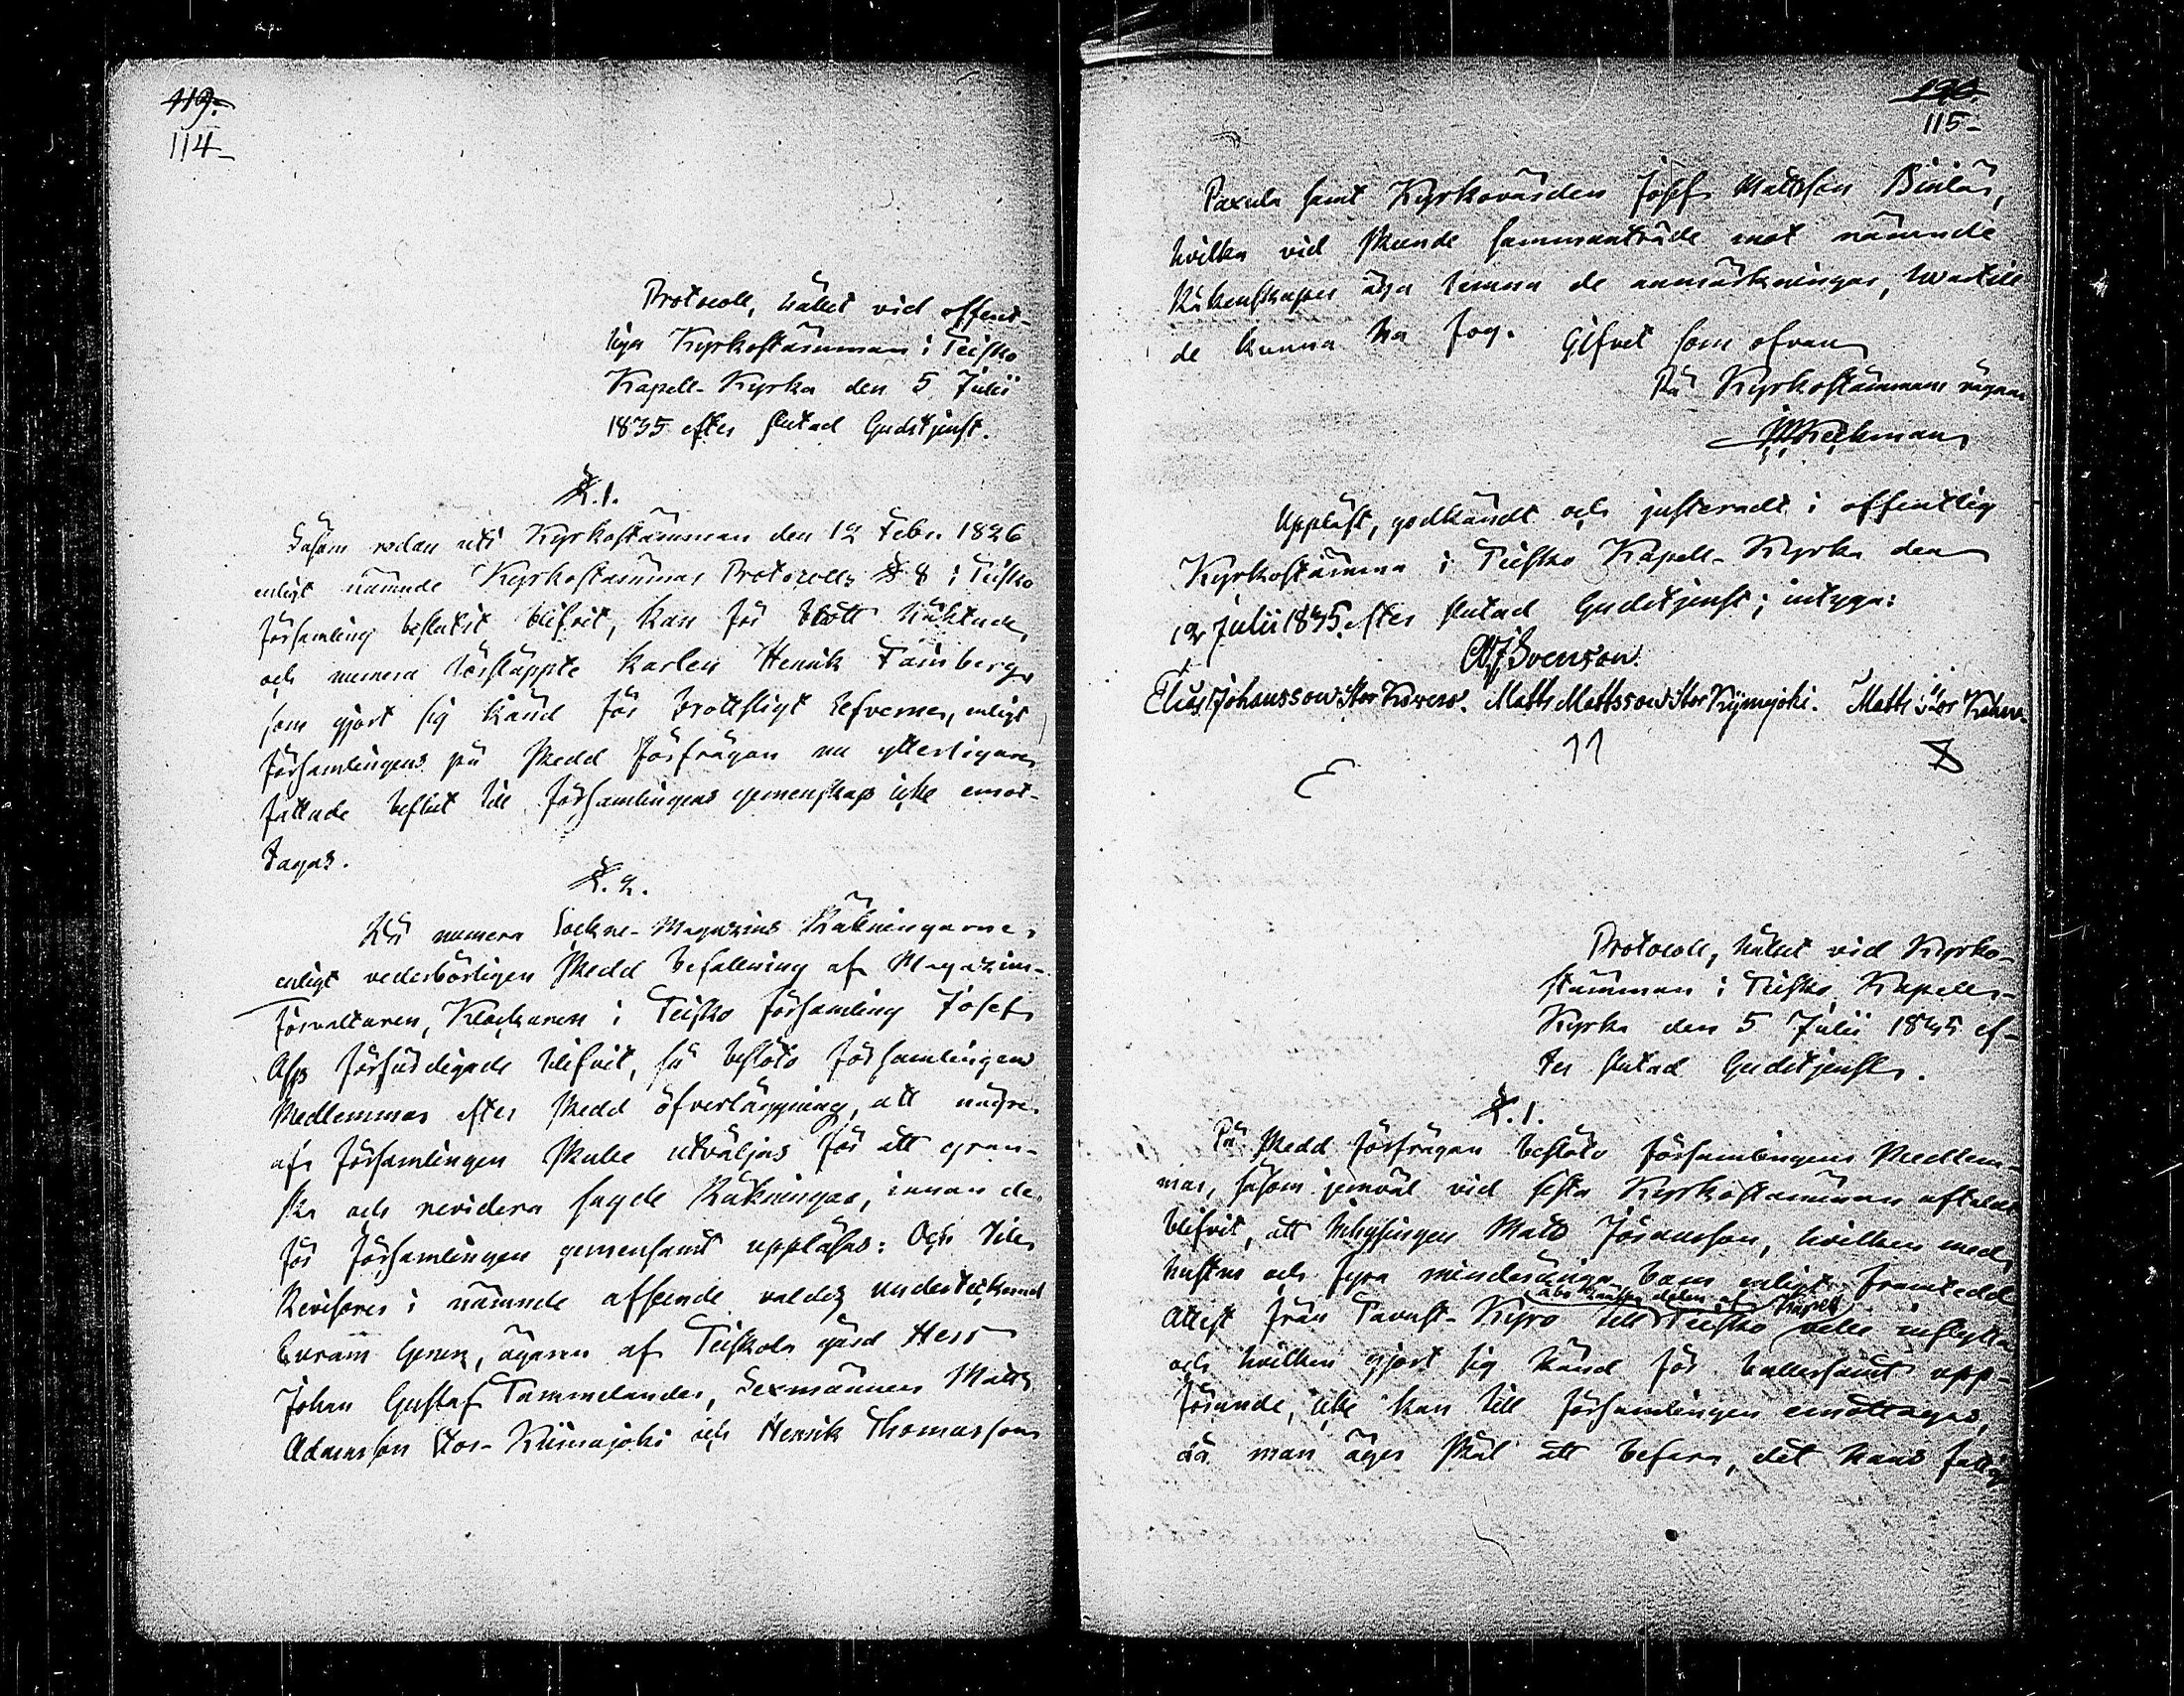 119.
114
Protocoll, hållit vid offent-
liga Kyrkostämman i Teisko
Kapell-Kyrka den 5 Julii
1835 efter slutad Gudstjenst.
§.1.
Såsom redan uti Kyrkostämman den 12 Febr. 1826
enligt nämnde Kyrkostämmas Protocolls § 8 i Teisko
församling beslutit blifvit, kan för brott häktade
och numera lössläppte karlen Henrik Tamberg,
som gjort sig känd för brottsligt lefverne, enligt
församlingens på skedd förfrågan nu ytterligare
fattade beslut till församlingens gemenskap icke emot-
tagas.
§.2.
Då numera Sockne-Magazins Räkningarne,
enligt vederbörligen skedd befallning af Magazins-
förvaltaren, Klockaren i Teisko församling Josef
Asp förfärdigade blifvit, så beslöto församlingens
Medlemmar efter skedd öfverläggning, att någre
af församlingen skulle utväljas för att gran-
ska och revidera sagde Räkningar, innan de
för församlingen gemensamt uppläsas: Och till
Revisorer i nämnde afseende valdes undertecknad
ägaren af Teiskola gård Herr
Johan Gustaf Tammelander, Sexmännen Matts
Adamsson Stor-Kiimajoki och Henrik Thomasson
115
Paxula samt Kyrkovärden Josef Mattsson
hvilka vid skeende sammanträde mot nämnde
Räkenskaper äga lemna de anmärkningar, hvartill
de kunna ha fog. Gifvet som ofvan
På Kyrkostämmans vägnar
Uppläst, godkändt och justeradt i offentlig
Kyrkostämma i Teisko Kapell-Kyrka den
12 Julii 1835 efter slutad Gudstjenst; intyga:
Svenson
Elias Johansson Stor Matts Mattsson Stor Kijmajoki. Matts Stor
Protocoll, hållit vid Kyrko-
stämman i Teisko Kapells-
Kyrka den 5 Julii 1835 ef-
ter slutad Gudstjenst.
§.1.
På skedd förfrågan beslöto församlingens Medlem-
mar, såsom jemväl vid sista Kyrkostämman aftaladt
blifvit, att Inhysingen Matts Jöransson, hvilken med
hustru och fyra minderåriga barn enligt framtedd
Attest från Tavast-Kyro till Teisko Kapell velat inflytta
och hvilken gjort sig känd för bullersamt upp-
förande, icke kan till församlingen emottagas,
då man äger skäl att befara, det hans fattig